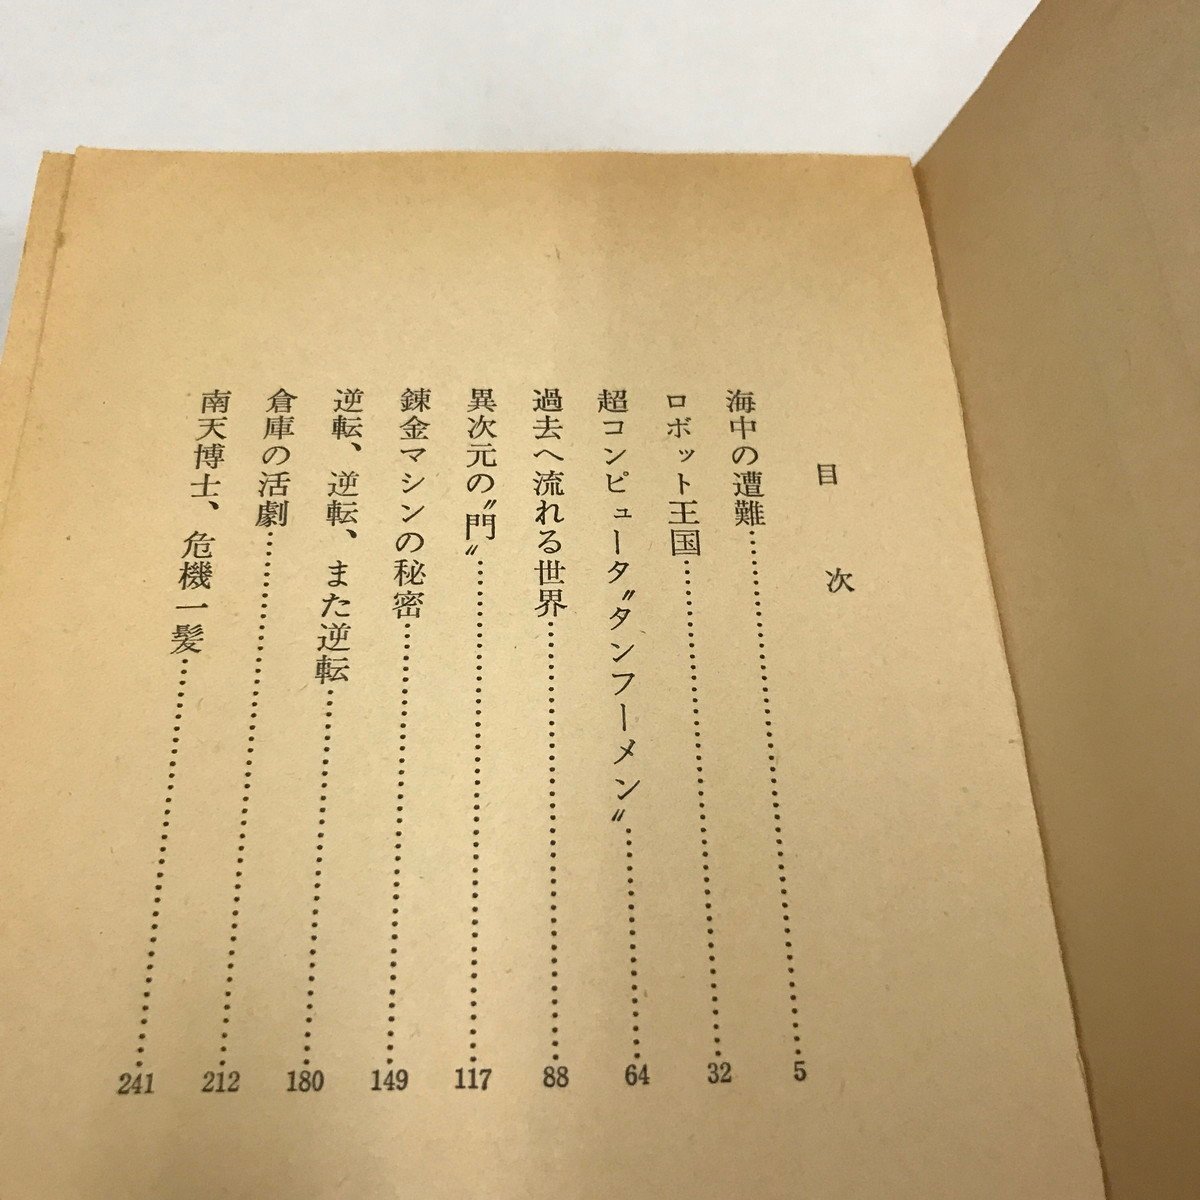 目次
海中の遭難……………………5
ロボット王国……………………32
超コンピュータ〝タンフーメン〟……………………64
過去へ流れる世界……………………88
異次元の〝門〟……………………117
錬金マシンの秘密……………………149
逆転、逆転、また逆転……………………180
倉庫の活劇……………………212
南天博士、危機一髪……………………241